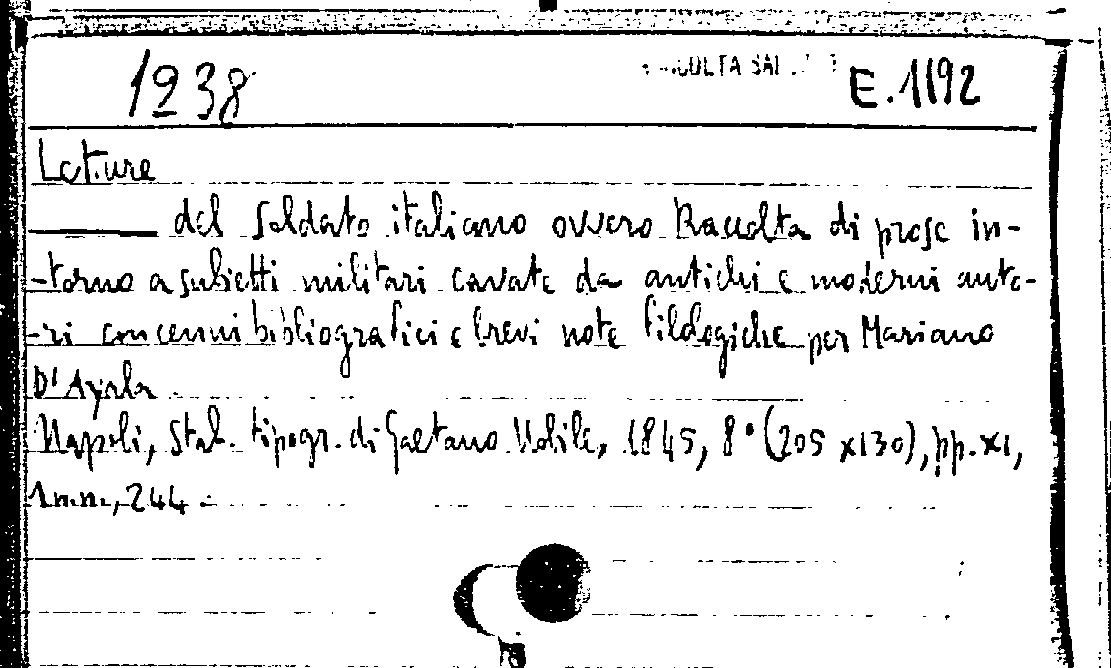 1238 E.1192
Letture
del Soldato italiano ovvero Raccolta di prose in-
-torno a subietti militari cavate da antichi e moderni auto-
-ri con cenni bibliografici e brevi note filologiche per Mariano
D'Ayala
Napoli, Stab. tipogr. di Gaetano Nobile, 1845, 8° (205 x130), pp. XI,
1 nn., 244.